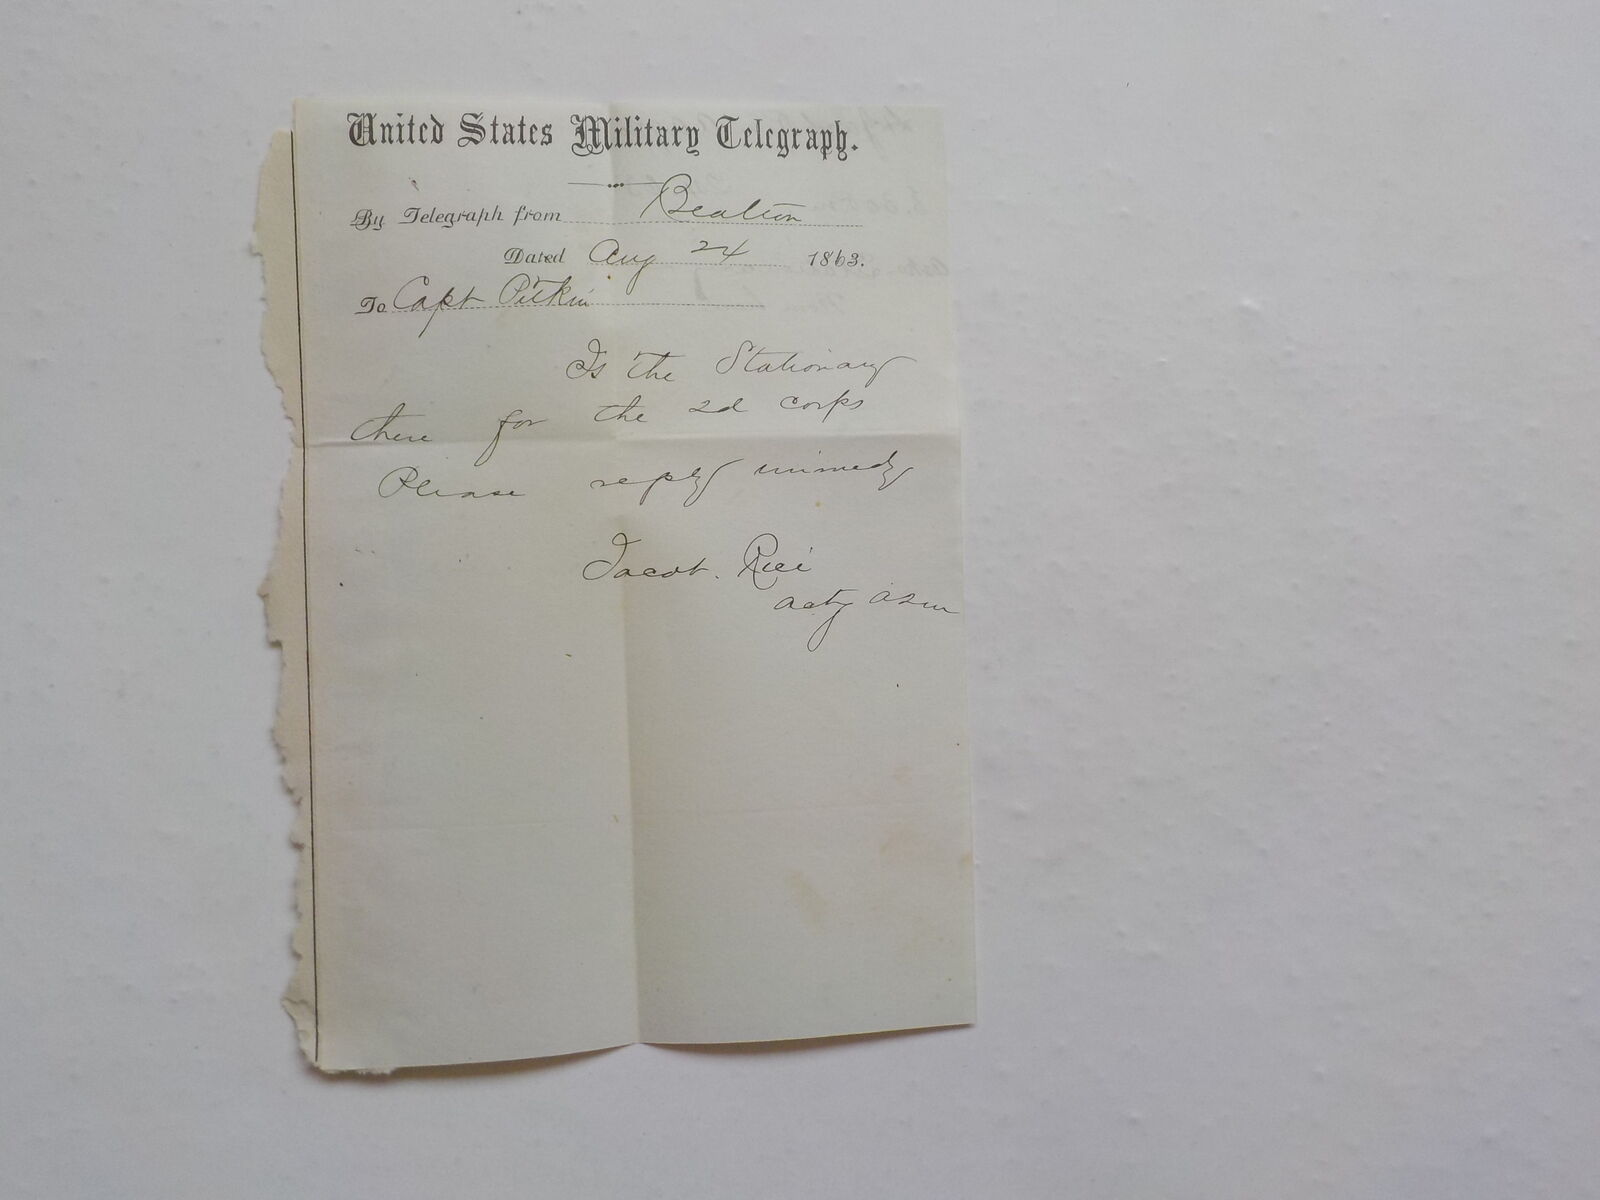 United States Military Telegraph.
By Telegraph from Bealton
Dated Aug 24 1863.
To Capt Pitkin
Is the Stationary
there for the 2d corps
Please reply immedy
Jacob. Rice
actg AQM